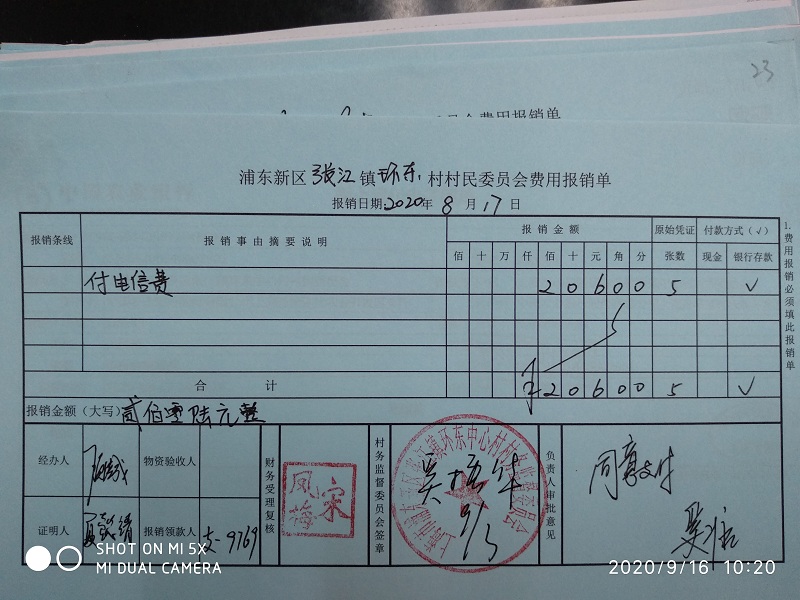 23
费用报销单
浦东新区张江镇环东村村民委员会费用报销单
报销日期2020年8月17日
报销条线 报销事由摘要说明 报销金额 原始凭证 付款方式(√)
佰 十 万 仟 佰 十 元 角 分 张数 现金 银行存款
付电信费 2 0 6 0 0 5 √
合计 ¥ 2 0 6 0 0 5 √
报销金额(大写)贰佰零陆元整
经办人 物资验收人
证明人 报销领款人 支-9769
财务受理复核
宋凤梅
村务监督委员会签章
镇环东中心村村务监督委员会
9/3
负责人审批意见
同意支付
1.费用报销必须填此报销单
SHOT ON MI 5X
MI DUAL CAMERA
2020/9/16 10:20